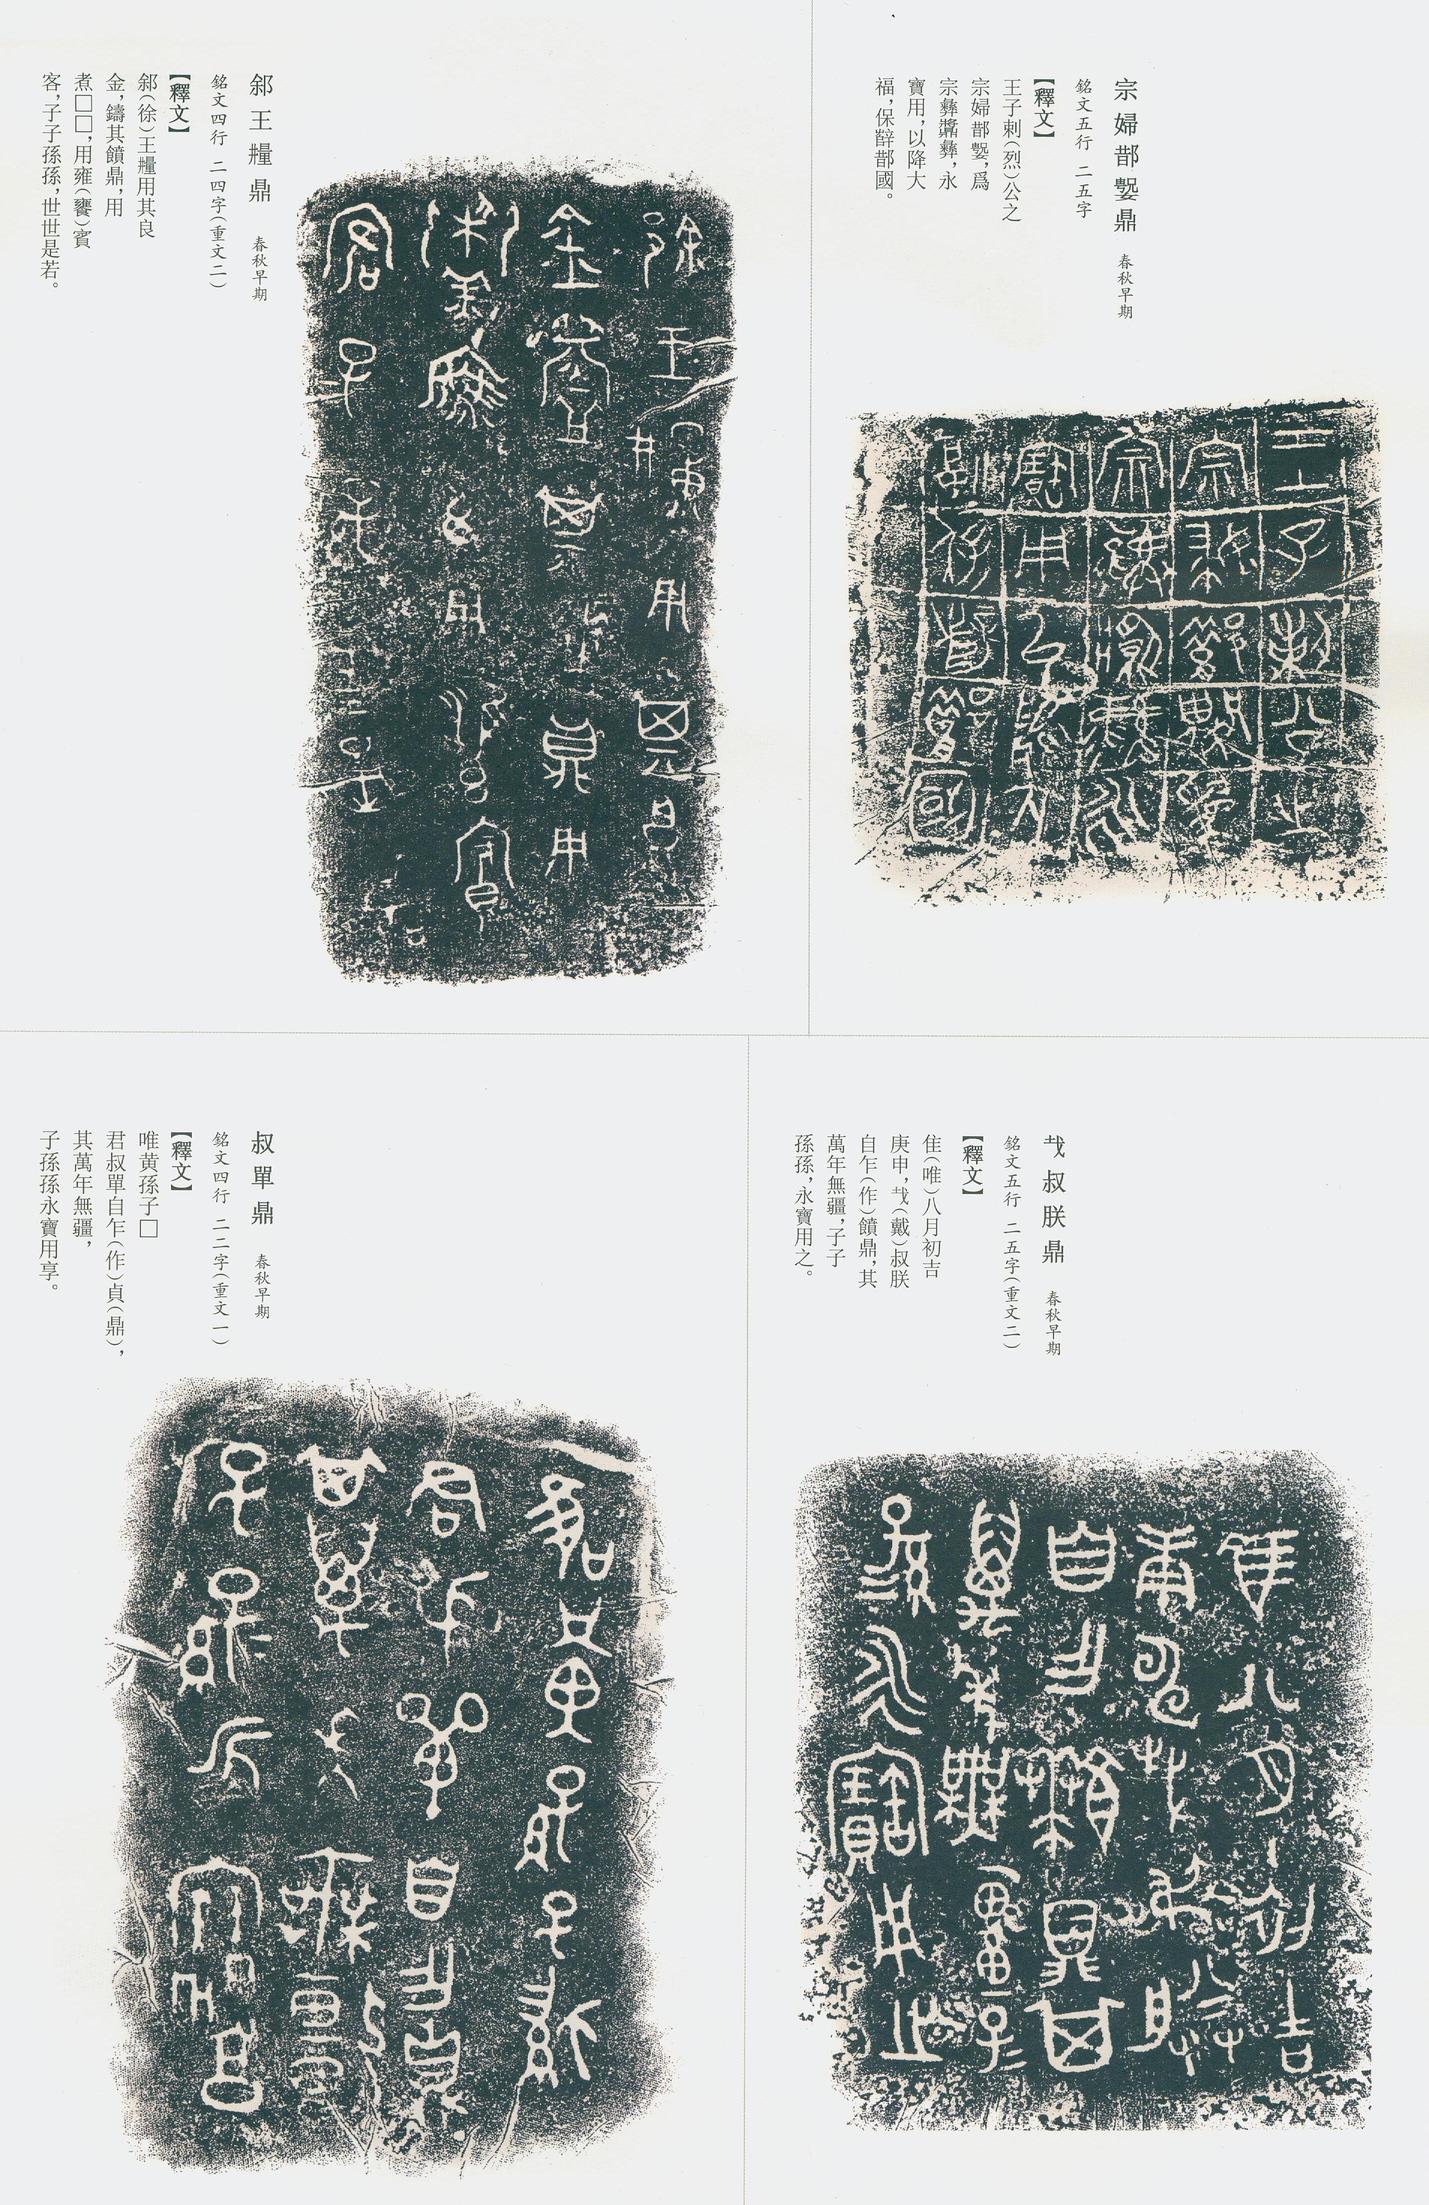 宗婦鄁嫛鼎 春秋早期
銘文五行 二五字
【釋文】
王子剌（烈）公之
宗婦鄁嫛，爲
宗彝彝，永
寶用，以降大
福，保辥鄁國。
䣄王糧鼎 春秋早期
銘文四行 二四字（重文二）
【釋文】
䣄（徐）王糧用其良
金，鑄其饙鼎，用
煮□□，用雍（饔）賓
客，子子孫孫，世世是若。
叔朕鼎 春秋早期
銘文五行 二五字（重文二）
【釋文】
隹（唯）八月初吉
庚申，（戴）叔朕
自乍（作）饙鼎，其
萬年無疆，子子
孫孫，永寶用之。
叔單鼎 春秋早期
銘文四行 二二字（重文一）
【釋文】
唯黄孫子□
君叔單自乍（作）貞（鼎），
其萬年無疆，
子孫孫永寶用享。